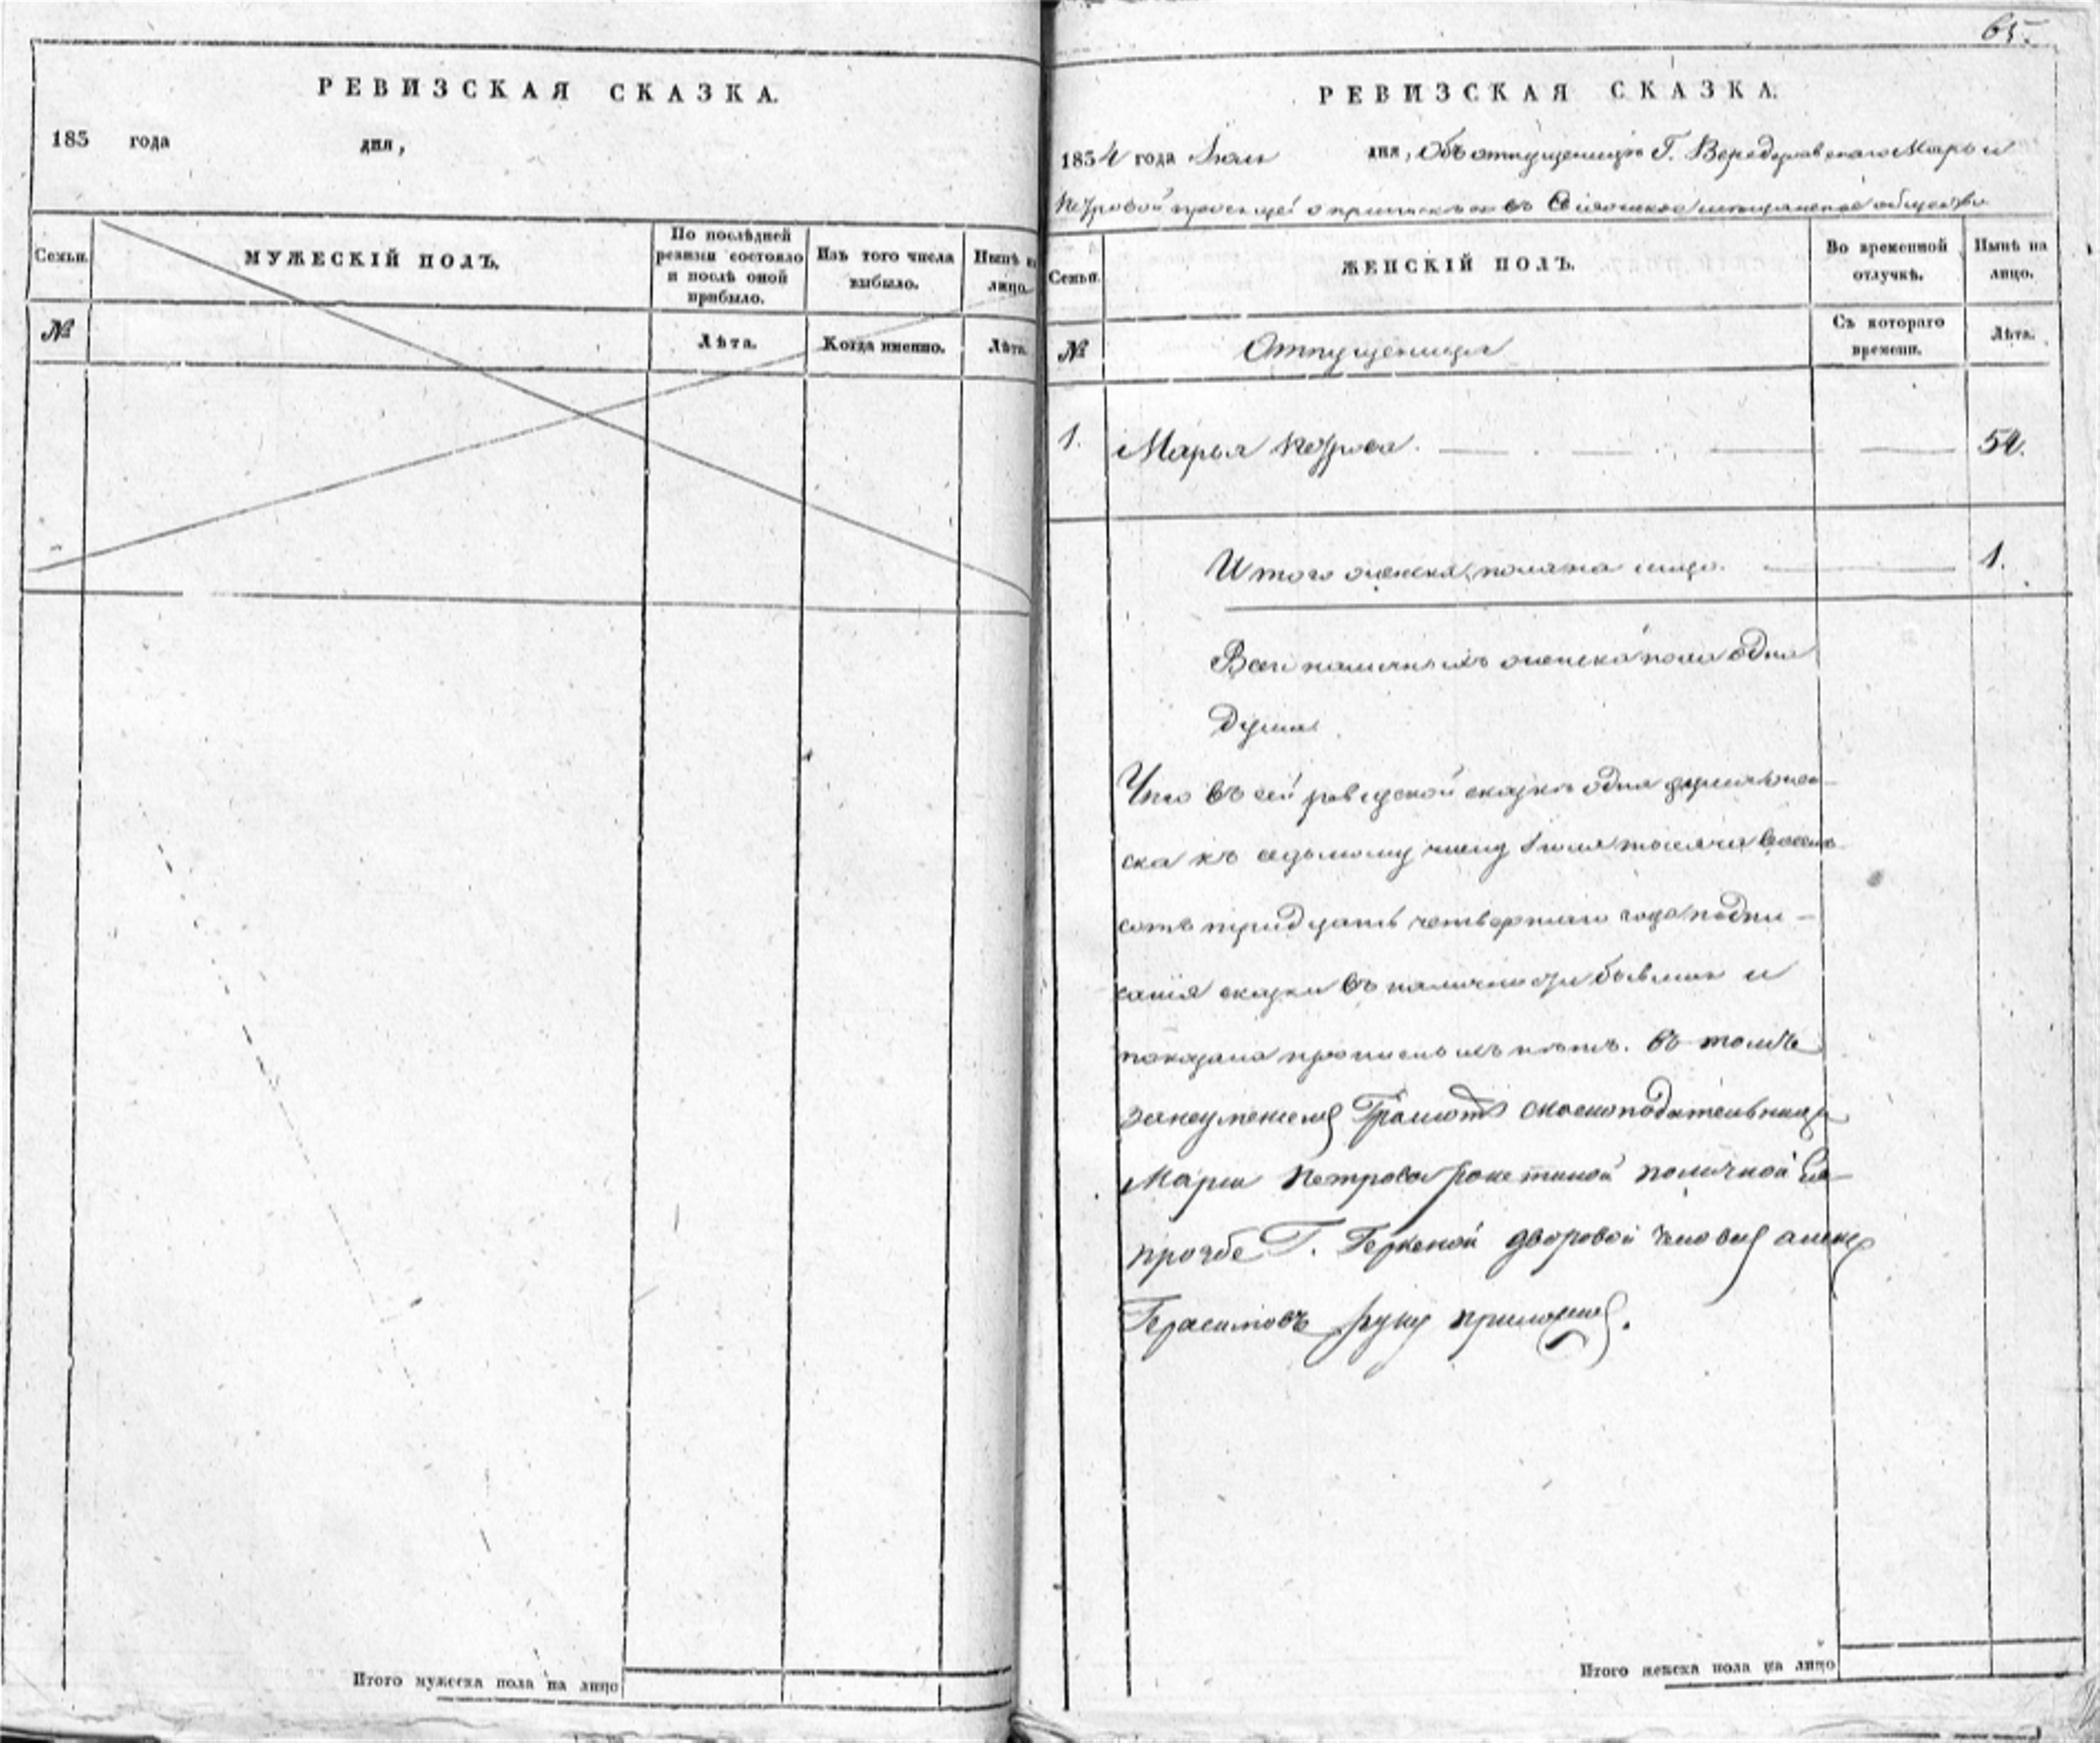 РЕВИЗСКАЯ СКАЗКА.
183 года дня,
Семьи.
МУЖЕСКІЙ ПОЛЪ.
По послѣдней
ревизіи состояло
и послѣ оной
прибыло.
Изъ того числа
выбыло.
Нынѣ на
лицо.
№
Лѣта.
Когда именно.
Лѣта.
Итого мужеска пола на лицо
65.
РЕВИЗСКАЯ СКАЗКА.
1834 года Іюля дня, Объ отпущенницѣ Г. Марьи
Петровой просящей о припискѣ въ мещанское общество
Семьи.
ЖЕНСКІЙ ПОЛЪ.
Во временной
отлучкѣ.
Нынѣ на
лицо.
№
Отпущенница
Съ котораго
времени.
Лѣта.
1. Марья Петрова. 54.
Итого женска пола на лицо. 1.
Всего наличныхъ женска пола одна
душа.
Что въ сей ревизской сказкѣ одна душа жен-
ска къ седьмому числу Іюля тысяча восемь
сотъ тридцать четвертаго года подпи-
санія сказки въ наличности бывшая и
показана прописныхъ нѣтъ. въ томъ
Грамоте
Марьи Петровой личной
прозбе Г. дворовой человекъ
Герасимовъ руку приложилъ.
Итого женска пола на лицо